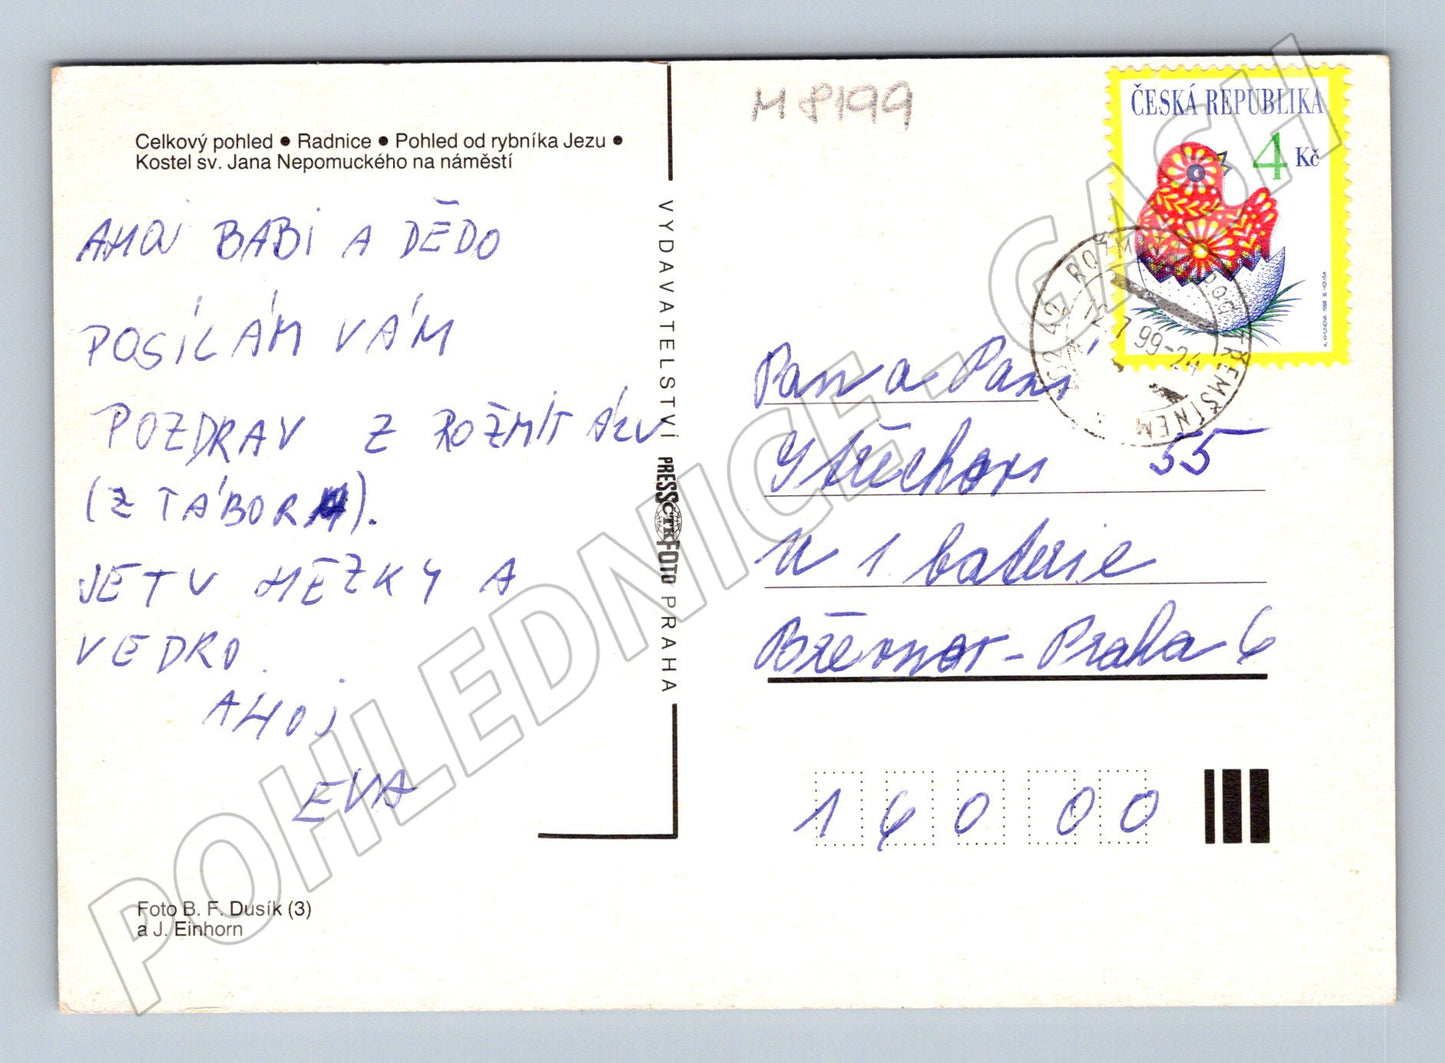 Celkový pohled ● Radnice ● Pohled od rybníka Jezu ●
Kostel sv. Jana Nepomuckého na náměstí
AHOJ BABI A DĚDO
POSÍLÁM VÁM
POZDRAV Z ROŽMITÁLU
(Z TÁBORA).
JE TU HEZKY A
VEDRO.
AHOJ
EVA
Foto B. F. Dusík (3)
a J. Einhorn
VYDAVATELSTVÍ PRESSFOTO PRAHA
ČTK
M 8199
ČESKÁ REPUBLIKA
4 Kč
262 42 ROŽMITÁL POD TŘEMŠÍNEM
12.7.99-24
Pan a Paní
55
U 1. baterie
Břevnov - Praha 6
160 00
POHLEDNICE - GASH